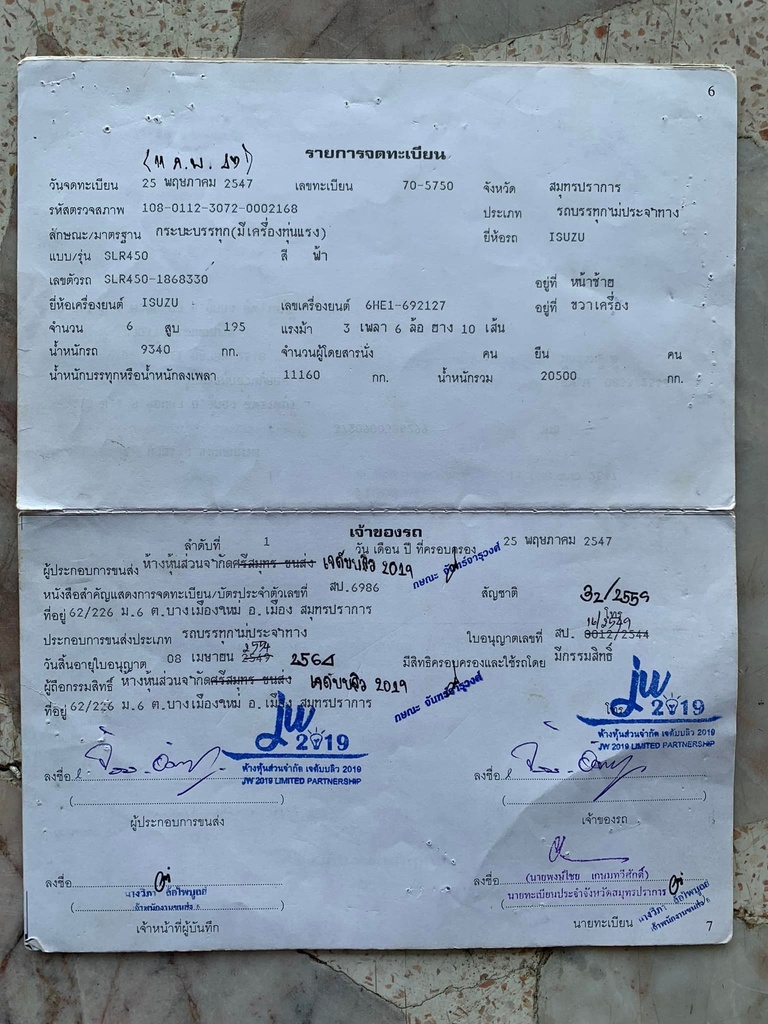 6
รายการจดทะเบียน
(11 ค.พ. 12)
วันจดทะเบียน 25 พฤษภาคม 2547 เลขทะเบียน 70-5750 จังหวัด สมุทรปราการ
รหัสตรวจสภาพ 108-0112-3072-0002168 ประเภท รถบรรทุกไม่ประจำทาง
ลักษณะ/มาตรฐาน กระบะบรรทุก(มีเครื่องทุ่นแรง) ยี่ห้อรถ ISUZU
แบบ/รุ่น SLR450 สี ฟ้า
เลขตัวรถ SLR450-1868330 อยู่ที่ หน้าซ้าย
ยี่ห้อเครื่องยนต์ ISUZU เลขเครื่องยนต์ 6HE1-692127 อยู่ที่ ขวาเครื่อง
จำนวน 6 สูบ 195 แรงม้า 3 เพลา 6 ล้อ ยาง 10 เส้น
น้ำหนักรถ 9340 กก. จำนวนผู้โดยสารนั่ง คน ยืน คน
น้ำหนักบรรทุกหรือน้ำหนักลงเพลา 11160 กก. น้ำหนักรวม 20500 กก.
เจ้าของรถ
ลำดับที่ 1 วัน เดือน ปี ที่ครอบครอง 25 พฤษภาคม 2547
ผู้ประกอบการขนส่ง ห้างหุ้นส่วนจำกัดศรีสมุทร ขนส่ง เจดับบลิว 2019
หนังสือสำคัญแสดงการจดทะเบียน/บัตรประจำตัวเลขที่ สป.6986 สัญชาติ 32/2559
ที่อยู่ 62/226 ม.6 ต.บางเมืองใหม่ อ.เมือง สมุทรปราการ โทร
ประกอบการขนส่งประเภท รถบรรทุกไม่ประจำทาง ใบอนุญาตเลขที่ สป. 0012/2544 16/2549
วันสิ้นอายุใบอนุญาต 08 เมษายน 2549 2564 มีสิทธิครอบครองและใช้รถโดย มีกรรมสิทธิ์
ผู้ถือกรรมสิทธิ์ ห้างหุ้นส่วนจำกัดศรีสมุทร ขนส่ง เจดับบลิว 2019
ที่อยู่ 62/226 ม.6 ต.บางเมืองใหม่ อ.เมือง สมุทรปราการ โทร
jw
2019
ห้างหุ้นส่วนจำกัด เจดับบลิว 2019
JW 2019 LIMITED PARTNERSHIP
jw
2019
ห้างหุ้นส่วนจำกัด เจดับบลิว 2019
JW 2019 LIMITED PARTNERSHIP
ลงชื่อ ลงชื่อ
( ) ( )
ผู้ประกอบการขนส่ง เจ้าของรถ
ลงชื่อ ลงชื่อ
(นายพงษ์ไชย เกษมทวีศักดิ์)
นายทะเบียนประจำจังหวัดสมุทรปราการ
เจ้าหน้าที่ผู้บันทึก นายทะเบียน
7